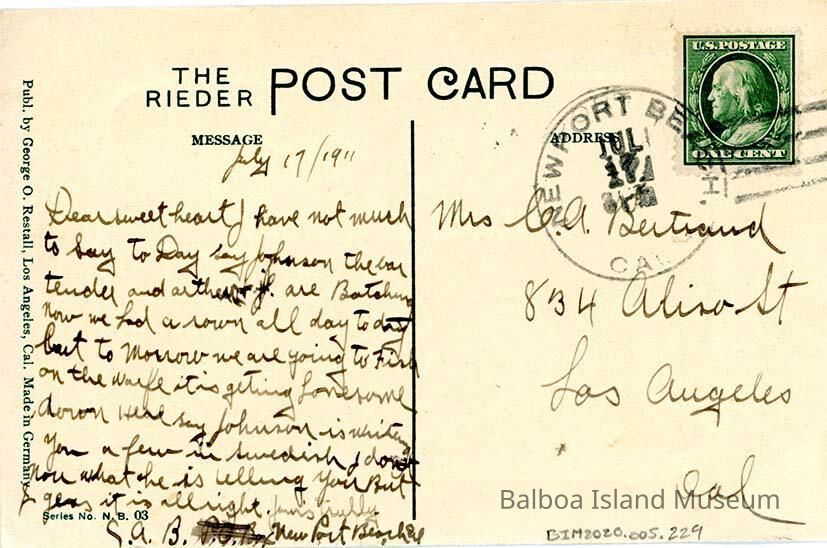 THE RIEDER POST CARD
U.S. POSTAGE
ONE CENT
NEWPORT BEACH
JUL
CAL.
MESSAGE
ADDRESS
July 17/1911
Dear sweet heart I have not much
to Say to Day say Johnson the bar
tender and arther J. are Batching
now we had a rown all day to day
but to Morrow we are going to Fish
on the warfe it is geting Lonesome
down here say Johnson is writing
you a few in swedish I dont
now what he is telling you But
I gess it is allright yours truly
G. A. B. New Port Beach Cal
Mrs C. A. Bertrand
834 Aliso St
Los Angeles
Cal
Publ. by George O. Restall, Los Angeles, Cal. Made in Germany
Series No. N. B. 03
Balboa Island Museum
BIM2020.005.229